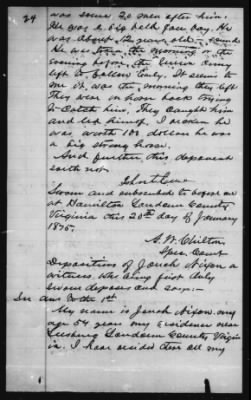 24
was some 20 men after him.
He was a big bald face bay. He
was about 12 years old,
He was the morning or the
evening before, the Union Army
left to Culpeper County. It seems to
me it was the morning they left
They were on horse back trying
to catch him. They caught him
and led him off. I reckon he
was worth 100 dollars he was
a big strong horse.
And further this deponent
saith not.
Sworn and subscribed to before me
at Hamilton Loudoun County
Virginia this 28th day of January
1875.
A. W. Chilton
Spec. Comr
Deposition of Jonah Nixon a
witness, who being first duly
sworn deposes and says:-
In ans to the 1st
My name is Jonah Nixon. my
age 54 years my residence near
Leesburg Loudoun County Virgin
ia. I have resided there all my